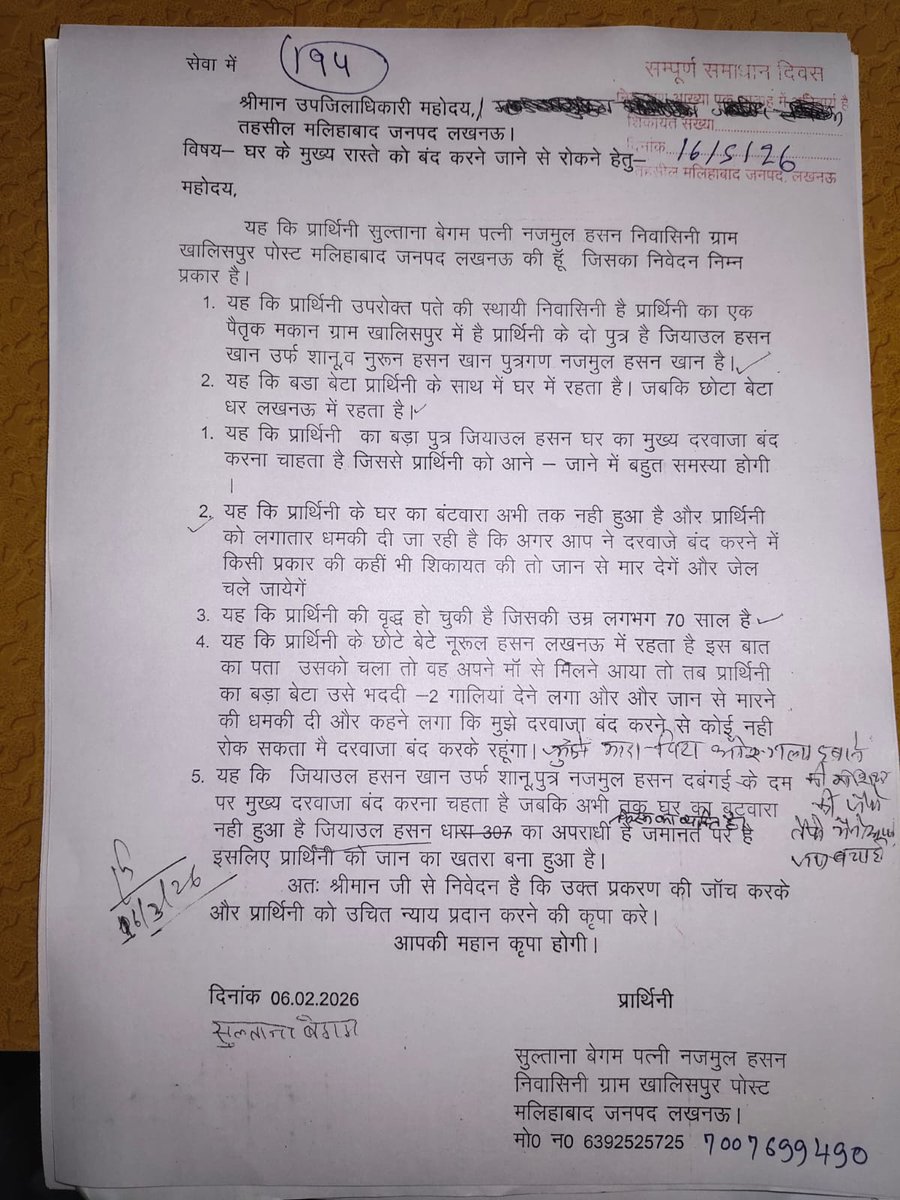 सेवा में
194
सम्पूर्ण समाधान दिवस
श्रीमान उपजिलाधिकारी महोदय,
शिकायत संख्या
तहसील मलिहाबाद जनपद लखनऊ।
दिनांक 16/5/26
विषय– घर के मुख्य रास्ते को बंद करने जाने से रोकने हेतु–
तहसील मलिहाबाद जनपद, लखनऊ
महोदय,
यह कि प्रार्थिनी सुल्ताना बेगम पत्नी नजमुल हसन निवासिनी ग्राम
खालिसपुर पोस्ट मलिहाबाद जनपद लखनऊ की हूँ जिसका निवेदन निम्न
प्रकार है।
1. यह कि प्रार्थिनी उपरोक्त पते की स्थायी निवासिनी है प्रार्थिनी का एक
पैतृक मकान ग्राम खालिसपुर में है प्रार्थिनी के दो पुत्र है जियाउल हसन
खान उर्फ शानू,व नुरून हसन खान पुत्रगण नजमुल हसन खान है।
2. यह कि बडा बेटा प्रार्थिनी के साथ में घर में रहता है। जबकि छोटा बेटा
धर लखनऊ में रहता है।
1. यह कि प्रार्थिनी का बड़ा पुत्र जियाउल हसन घर का मुख्य दरवाजा बंद
करना चाहता है जिससे प्रार्थिनी को आने – जाने में बहुत समस्या होगी
।
2. यह कि प्रार्थिनी के घर का बंटवारा अभी तक नही हुआ है और प्रार्थिनी
को लगातार धमकी दी जा रही है कि अगर आप ने दरवाजे बंद करने में
किसी प्रकार की कहीं भी शिकायत की तो जान से मार देगें और जेल
चले जायेगें
3. यह कि प्रार्थिनी की वृद्ध हो चुकी है जिसकी उम्र लगभग 70 साल है
4. यह कि प्रार्थिनी के छोटे बेटे नूरूल हसन लखनऊ में रहता है इस बात
का पता उसको चला तो वह अपने माँ से मिलने आया तो तब प्रार्थिनी
का बड़ा बेटा उसे भददी –2 गालियां देने लगा और और जान से मारने
की धमकी दी और कहने लगा कि मुझे दरवाजा बंद करने से कोई नही
रोक सकता मै दरवाजा बंद करके रहूंगा। मुझे मारा गला दबाने
की कोशिश की
5. यह कि जियाउल हसन खान उर्फ शानू,पुत्र नजमुल हसन दबंगई के दम
पर मुख्य दरवाजा बंद करना चहता है जबकि अभी तक घर का बटवारा
नही हुआ है जियाउल हसन धारा 307 का अपराधी है जमानत पर है
इसलिए प्रार्थिनी को जान का खतरा बना हुआ है।
अतः श्रीमान जी से निवेदन है कि उक्त प्रकरण की जॉच करके
और प्रार्थिनी को उचित न्याय प्रदान करने की कृपा करे।
आपकी महान कृपा होगी।
दिनांक 06.02.2026
प्रार्थिनी
सुल्ताना बेगम
सुल्ताना बेगम पत्नी नजमुल हसन
निवासिनी ग्राम खालिसपुर पोस्ट
मलिहाबाद जनपद लखनऊ।
मो0 न0 6392525725 7007699490